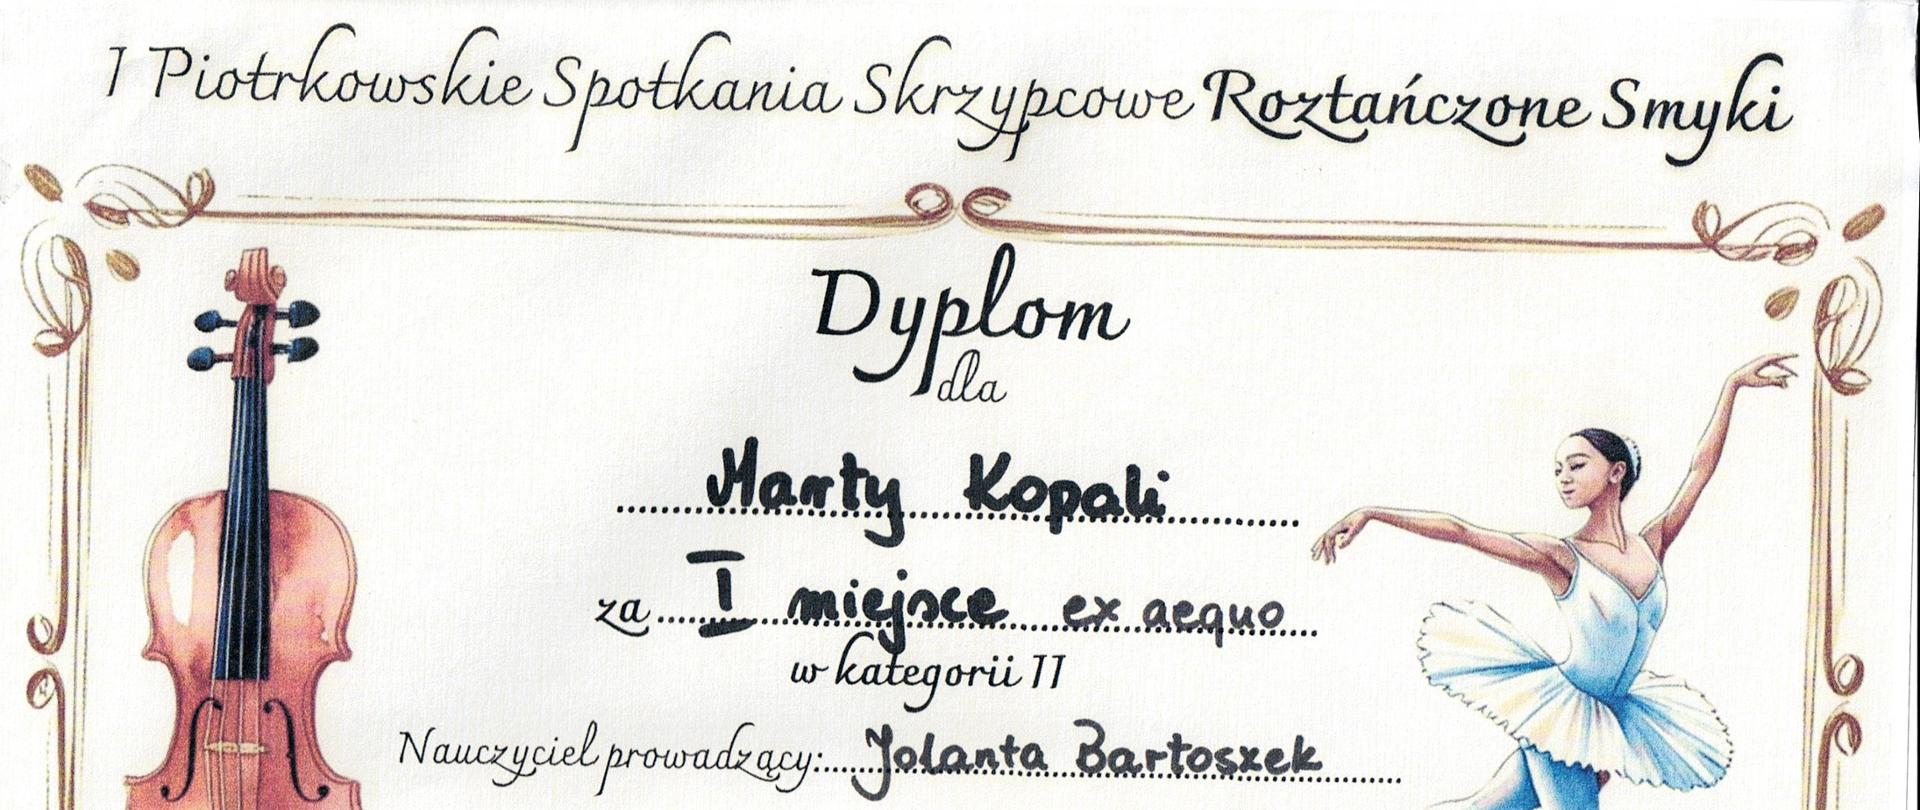 I Piotrkowskie Spotkania Skrzypcowe Roztańczone Smyki
Dyplom
dla
Marty Kopali
za I miejsce ex aequo
w kategorii II
Nauczyciel prowadzący: Jolanta Bartoszek